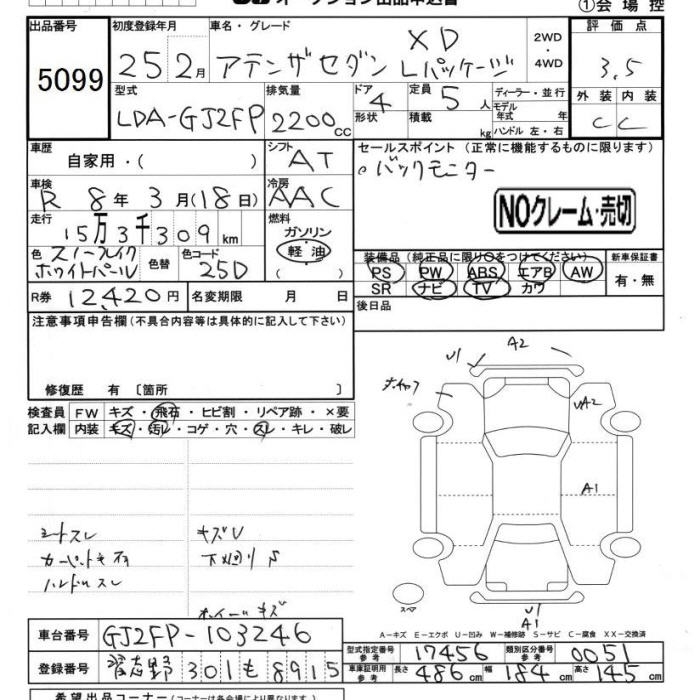 オークション出品申込書
①会場控
出品番号
5099
初度登録年月
25 2月
車名・グレード
アテンザセダン XD Lパッケージ
2WD
・
4WD
評価点
3.5
型式
LDA-GJ2FP
排気量
2200cc
ドア
4
形状
定員
5人
積載
kg
ディーラー・並行
モデル
年式 年
ハンドル 左・右
外装 内装
C C
車歴
自家用・( )
シフト
AT
セールスポイント(正常に機能するものに限ります)
バックモニター
NOクレーム・売切
車検
R 8年 3月(18日)
冷房
AAC
走行
15万3千309km
燃料
ガソリン
軽油
( )
色
スノーフレイク
ホワイトパール
色替
色コード
25D
装備品(純正品に限り○をつけてください)
PS PW ABS エアB AW
SR ナビ TV カワ
新車保証書
有・無
R券 12,420円
名変期限 月 日
後日品
注意事項申告欄(不具合内容等は具体的に記入して下さい)
修復歴 有〔箇所 〕
検査員
記入欄
FW キズ・飛石・ヒビ割・リペア跡・×要
内装 キズ・汚レ・コゲ・穴・スレ・キレ・破レ
シートスレ
ハンドルスレ
キズU
下廻りS
ホイールキズ
U1
A2
UA2
A1
スペア
U1
A1
A-キズ E-エクボ U-凹み W-補修跡 S-サビ C-腐食 XX-交換済
車台番号
GJ2FP-103246
登録番号
習志野 301 も 8915
型式指定番号
参考
17456
類別区分番号
参考
0051
車庫証明用
参考
長さ 486cm 幅 184cm 高さ 145cm
希望出品コーナー(コーナーは各会場により異なります。)